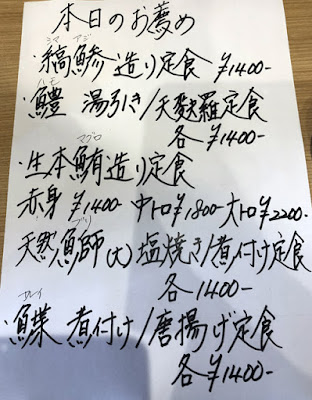 本日のお薦め
シマ アジ
・縞鯵造り定食 ¥1400-
ハモ
・鱧 湯引き/天麩羅定食
各 ¥1400-
マグロ
・生本鮪造り定食
赤身 ¥1400- 中トロ¥1800- 大トロ¥2200-
ブリ
天然魚師(大)塩焼き/煮付け定食
各 1400-
カレイ
・鰈 煮付け/唐揚げ定食
各 ¥1400-